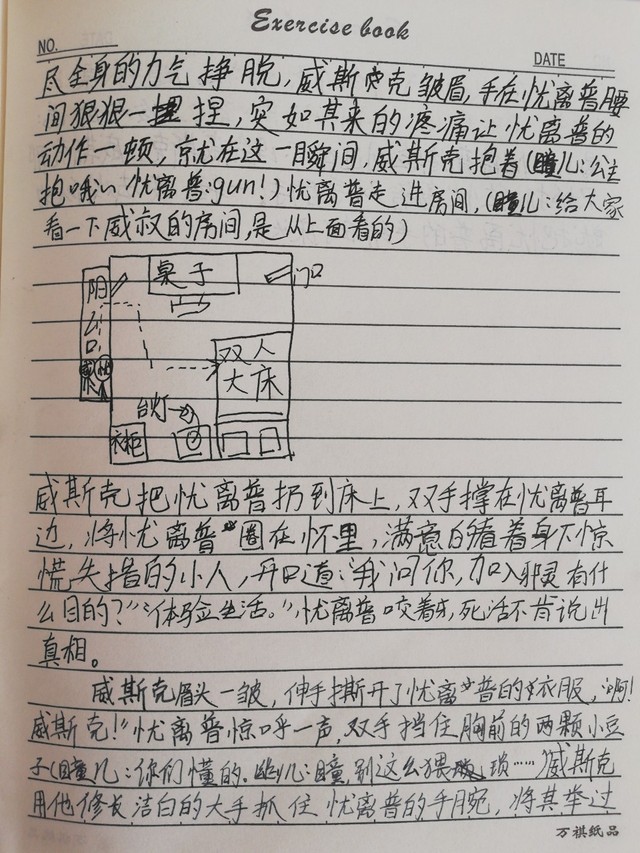 Exercise book
NO.
DATE
尽全身的力气挣脱，威斯克皱眉，手在忧离普腰
间狠狠一捏，突如其来的疼痛让忧离普的
动作一顿，就在这一瞬间，威斯克抱着(瞳儿：公主
抱哦~ 忧离普：gun！)忧离普走进房间，(瞳儿：给大家
看一下威叔的房间，是从上面看的)
阳台
桌子
门口
双人大床
台灯
衣柜
威斯克把忧离普扔到床上，双手撑在忧离普耳
边，将忧离普圈在怀里，满意的看着身下惊
慌失措的小人，开口道："我问你，加入邪灵有什
么目的？""体验生活。"忧离普咬着牙，死活不肯说出
真相。
威斯克眉头一皱，伸手撕开了忧离普的衣服，"啊！
威斯克！"忧离普惊呼一声，双手挡住胸前的两颗小豆
子(瞳儿：你们懂的。 儿：瞳别这么猥琐……)威斯克
用他修长洁白的大手抓住忧离普的手腕，将其举过
万祺纸品